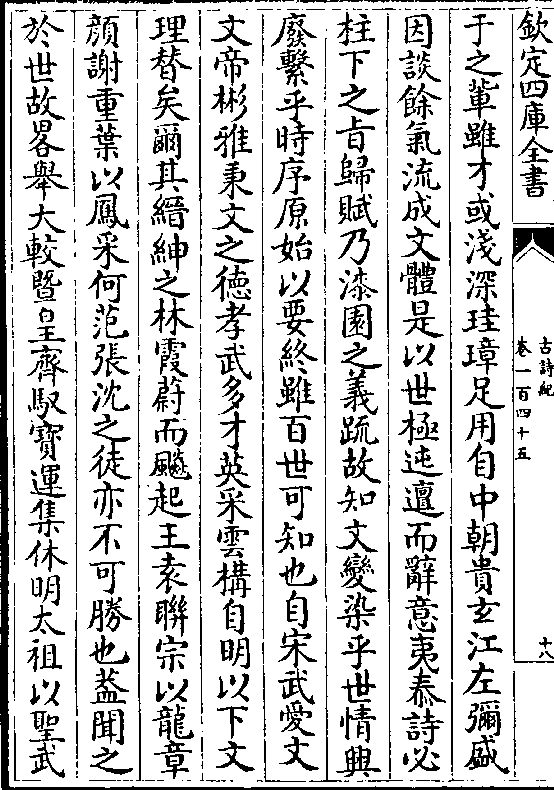 欽定四庫全書
古詩紀
卷一百四十五
十八
于之輩雖才或淺深珪璋足用自中朝貴玄江左彌盛
因談餘氣流成文體是以世極迍邅而辭意夷泰詩必
柱下之旨歸賦乃漆園之義疏故知文變染乎世情興
廢繫乎時序原始以要終雖百世可知也自宋武愛文
文帝彬雅秉文之德孝武多才英采雲構自明以下文
理替矣爾其縉紳之林霞蔚而飈起王袁聯宗以龍章
顔謝重葉以鳳采何范張沈之徒亦不可勝也葢聞之
於世故畧舉大較暨皇齊馭寶運集休明太祖以聖武